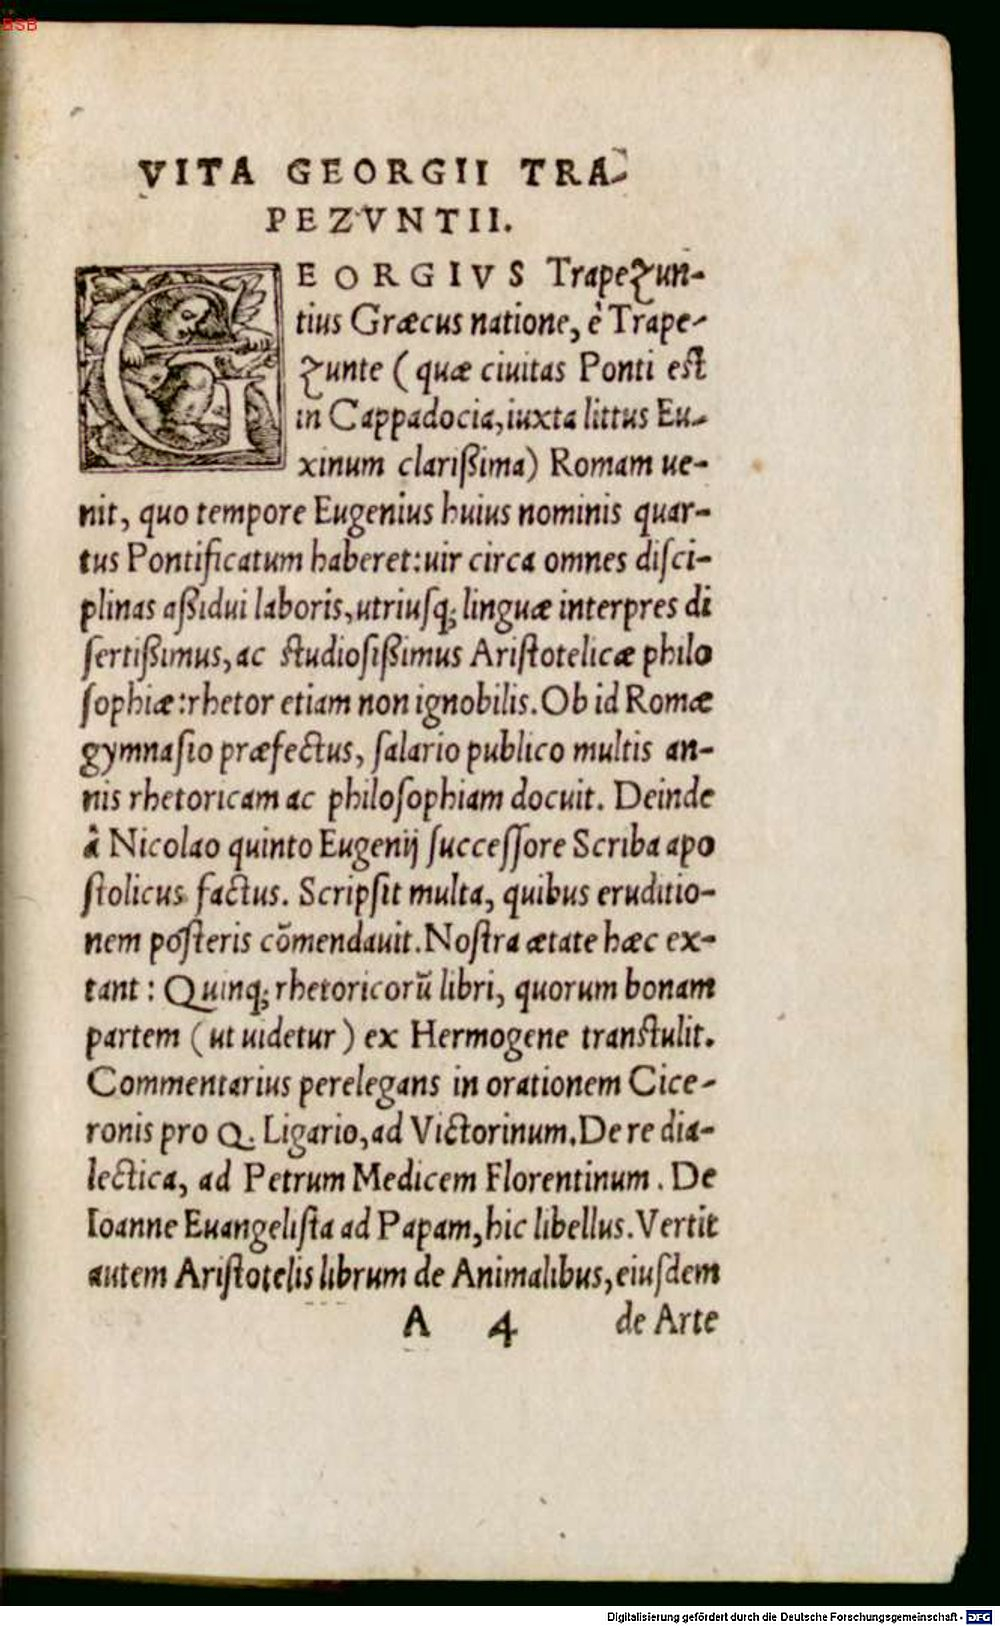 BSB
VITA GEORGII TRA-
PEZVNTII.
GEORGIVS Trapezun-
tius Græcus natione, è Trape-
zunte (quæ ciuitas Ponti est
in Cappadocia, iuxta littus Eu-
xinum clarißima) Romam ue-
nit, quo tempore Eugenius huius nominis quar-
tus Pontificatum haberet: uir circa omnes diſci-
plinas aßidui laboris, utriuſq; linguæ interpres di
ſertißimus, ac ſtudiosißimus Ariſtotelicæ philo
ſophiæ: rhetor etiam non ignobilis. Ob id Romæ
gymnaſio præfectus, ſalario publico multis an-
nis rhetoricam ac philoſophiam docuit. Deinde
à Nicolao quinto Eugenij ſucceſſore Scriba apo
ſtolicus factus. Scripſit multa, quibus eruditio-
nem poſteris cõmendauit. Noſtra ætate hæc ex-
tant: Quinq; rhetoricorũ libri, quorum bonam
partem (ut uidetur) ex Hermogene tranſtulit.
Commentarius perelegans in orationem Cice-
ronis pro Q. Ligario, ad Victorinum. De re dia-
lectica, ad Petrum Medicem Florentinum. De
Ioanne Euangeliſta ad Papam, hic libellus. Vertit
autem Ariſtotelis librum de Animalibus, eiuſdem
A 4 de Arte
Digitalisierung gefördert durch die Deutsche Forschungsgemeinschaft - DFG